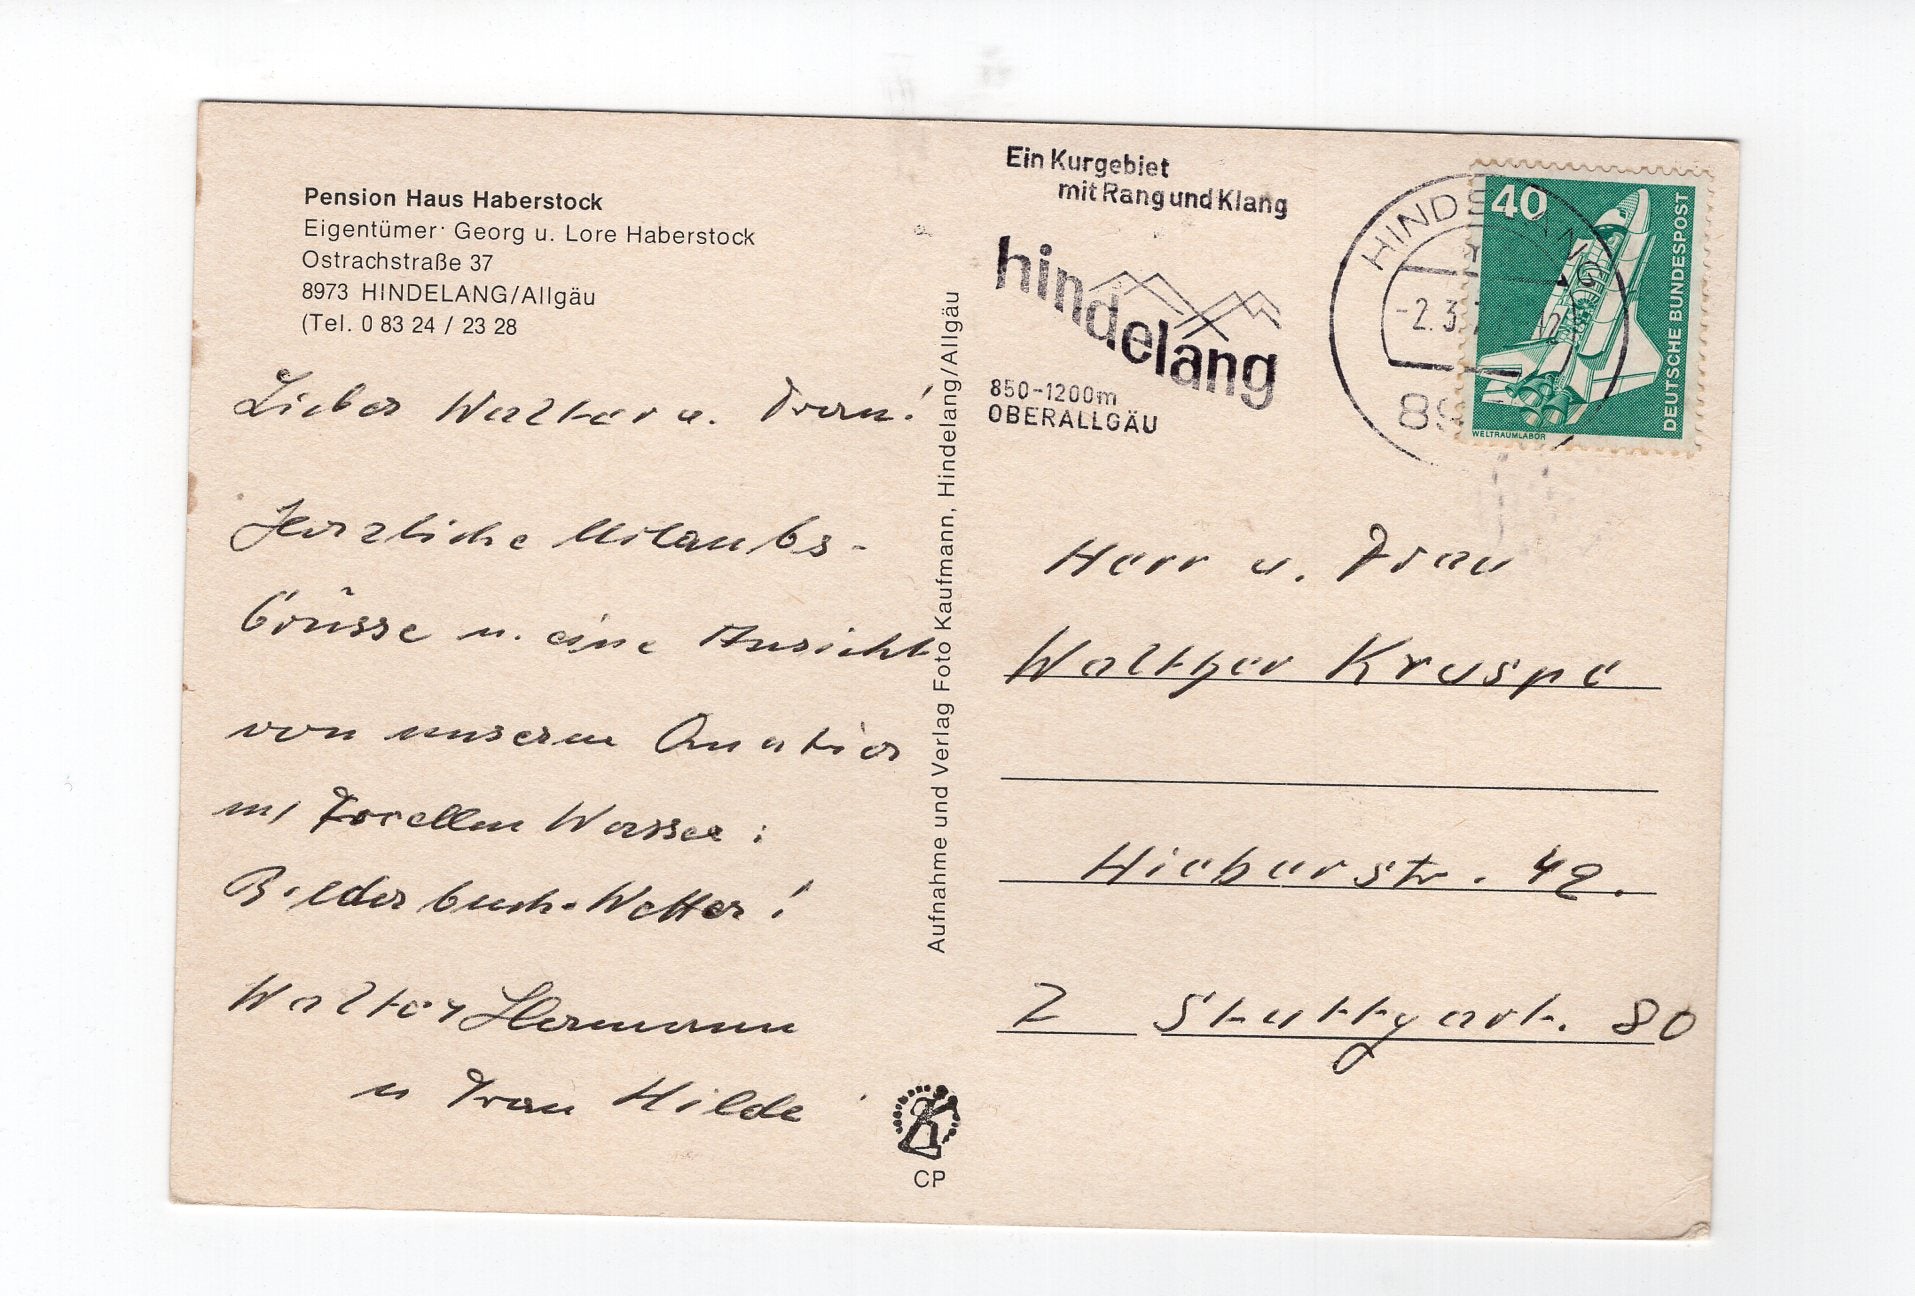 Pension Haus Haberstock
Eigentümer· Georg u. Lore Haberstock
Ostrachstraße 37
8973 HINDELANG/Allgäu
(Tel. 0 83 24 / 23 28
Lieber Walter u. Frau!
Herzliche Urlaubs-
Grüsse u. eine Ansicht
von unserem Quatier
m/ Forellen Wasser:
Bilderbuch-Wetter!
Walter Hermann
u Frau Hilde
Aufnahme und Verlag Foto Kaufmann, Hindelang/Allgäu
CP
Ein Kurgebiet
mit Rang und Klang
hindelang
850-1200m
OBERALLGÄU
HINDELANG
-2.3.
89
40
DEUTSCHE BUNDESPOST
WELTRAUMLABOR
Herr u. Frau
Walther Kruspe
Hieberstr. 42.
7 Stuttgart. 80